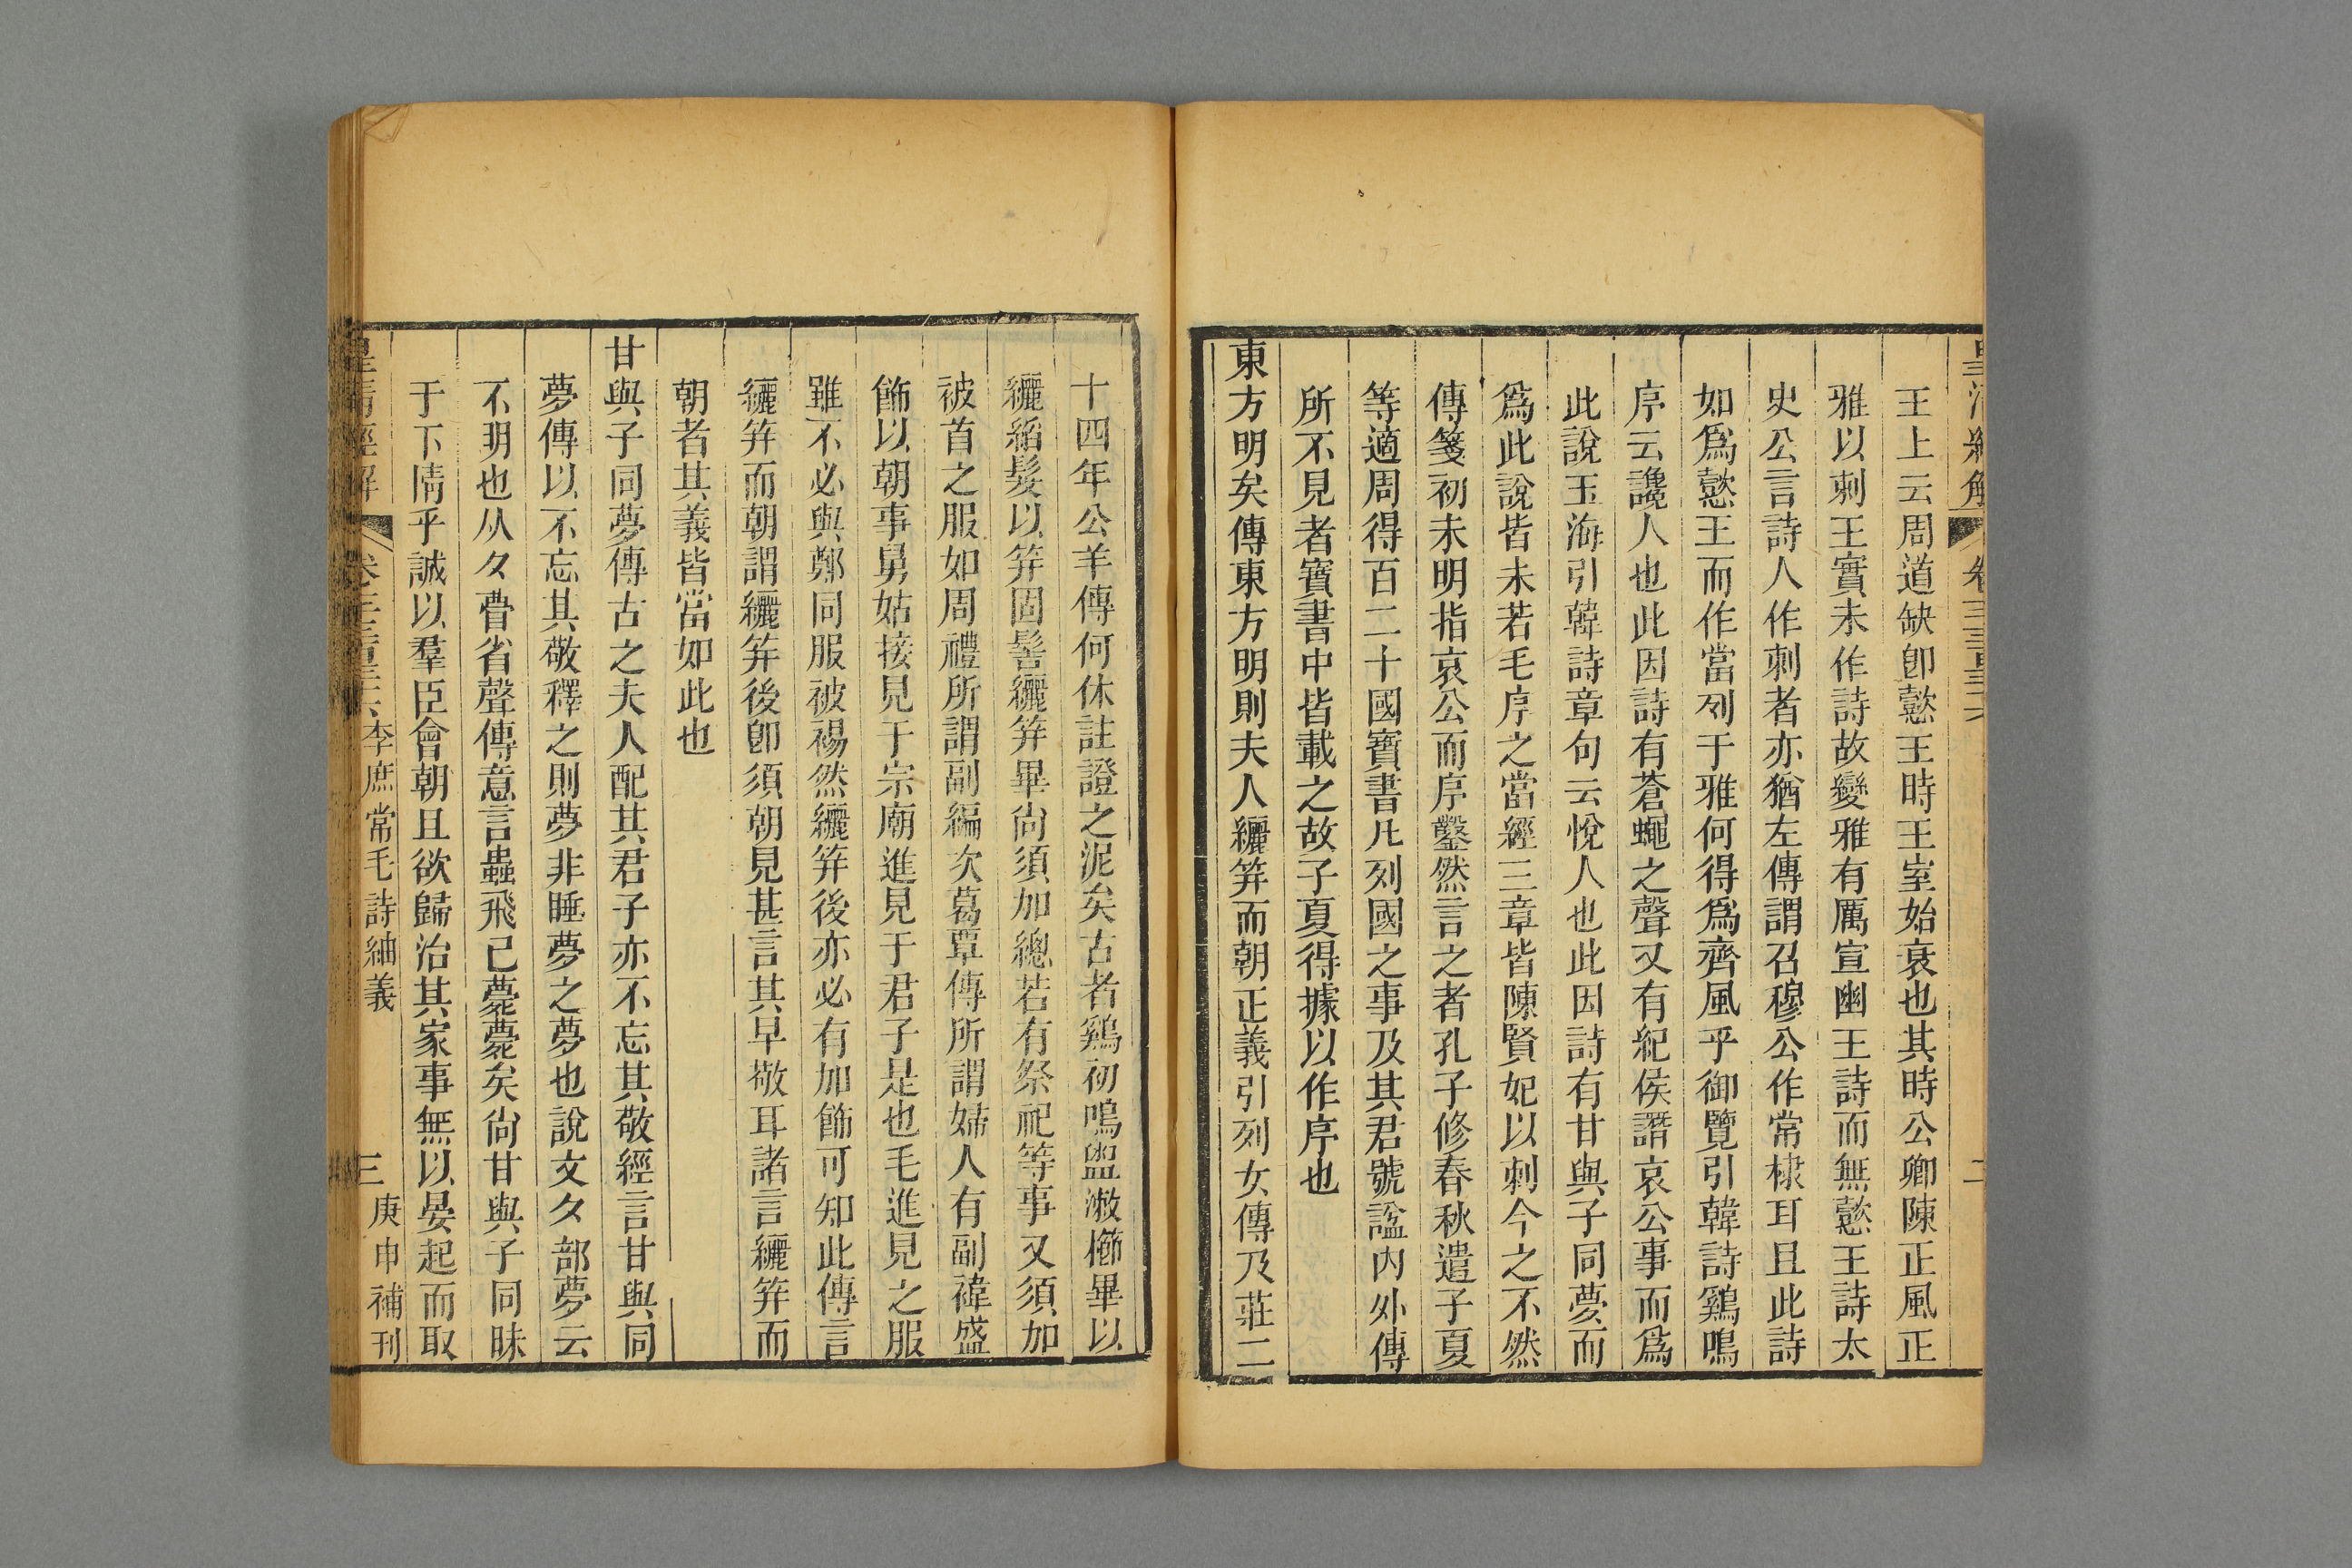 王上云周道缺卽懿王時王室始衰也其時公卿陳正風正
雅以刺王實未作詩故變雅有厲宣幽王詩而無懿王詩太
史公言詩人作刺者亦猶左傳謂召穆公作常棣耳且此詩
如爲懿王而作當列于雅何得爲齊風乎御覽引韓詩雞鳴
序云讒人也此因詩有蒼蠅之聲又有紀侯譖哀公事而爲
此說玉海引韓詩章句云悅人也此因詩有甘與子同夢而
爲此說皆未若毛序之當經三章皆陳賢妃以刺今之不然
傳箋初未明指哀公而序鑿然言之者孔子修春秋遣子夏
等適周得百二十國寶書凡列國之事及其君號諡內外傳
所不見者寶書中皆載之故子夏得據以作序也
東方明矣傳東方明則夫人纚笄而朝正義引列女傳及莊二
十四年公羊傳何休註證之泥矣古者鷄初鳴盥漱櫛畢以
纚縚髮以笄固髻纚笄畢尙須加總若有祭祀等事又須加
被首之服如周禮所謂副編次葛覃傳所謂婦人有副褘盛
飾以朝事舅姑接見于宗廟進見于君子是也毛進見之服
雖不必與鄭同服被裼然纚笄後亦必有加飾可知此傳言
纚笄而朝謂纚笄後卽須朝見甚言其早敬耳諸言纚笄而
朝者其義皆當如此也
甘與子同夢傳古之夫人配其君子亦不忘其敬經言甘與同
夢傳以不忘其敬釋之則夢非睡夢之夢也說文夕部夢云
不明也从夕瞢省聲傳意言蟲飛已薨薨矣尙甘與子同昧
于下情乎誠以羣臣會朝且欲歸治其家事無以晏起而取
皇淸經解
李庶常毛詩紬義
三
庚申補刊